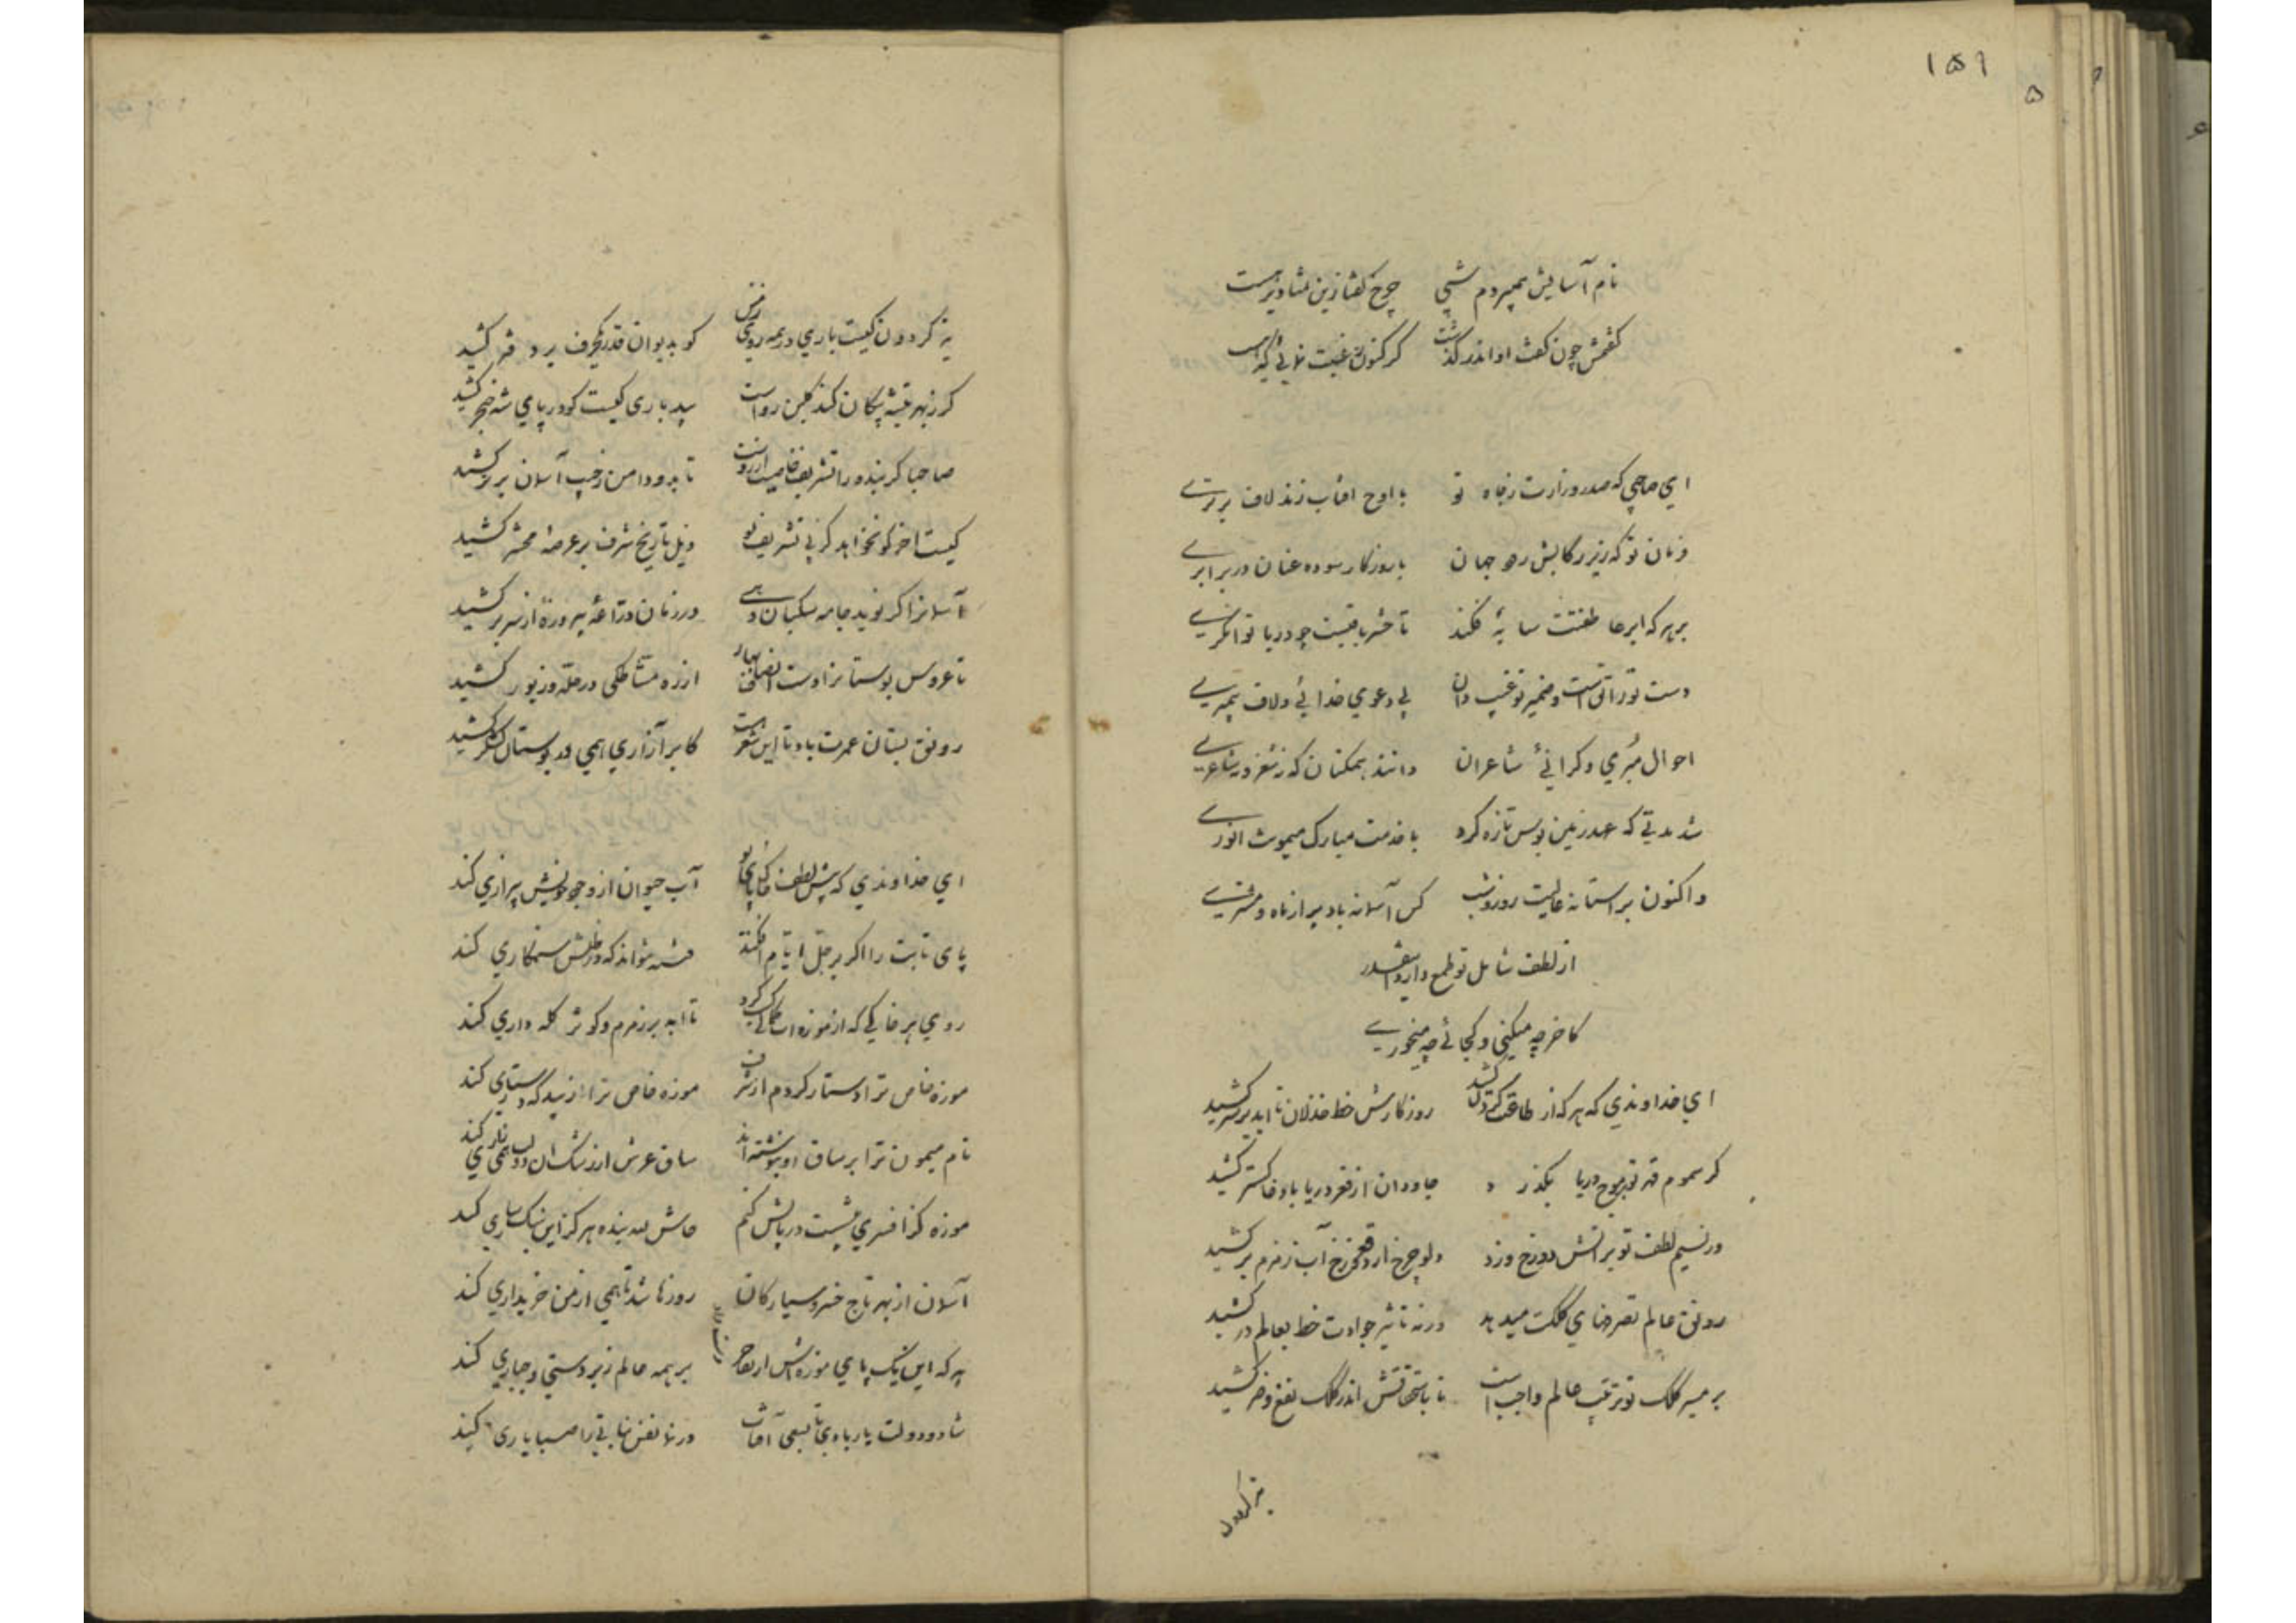 ۱۵۱
نام آسایش همی بردم شبی چرخ گفتا زین تمنا و نیز هست
گفتمش چون گفت او اندر گذشت
ای صاحبی که صدر وزارت ز جاه تو با اوج افتاب زند لاف برتری
فرمان تو که زیر رکابش رود جهان با روزکار سوده عنان در برابری
بر هر که ابر عاطفتت سایهٔ فکند تا حشر باقیست چو دریا توانگری
دست تو رزاق است و ضمیر تو غیب دان بی دعوی خدائی و لاف پیمبری
احوال مبرمی و کرانیٔ شاعران دانند همکنان که ز شعر و ز شاعری
شد مدتی که عهد زمین بوس تازه کرد با خدمت مبارک میموت انوری
واکنون بر استانه عالیت روز و شب کس آسمانه باد پر از ماه و مشتری
از لطف شامل تو طمع دارد اینقدر
کاخر چه میکنی و کجائی چه میخوری
ای خداوندی که هر که از طاعتت کردن کشد روزکارش خط خذلان تا ابد بر سر کشید
کر سموم قهر تو بر موج دریا بگذرد جاودان از قعر دریا باد خاکستر کشید
ور نسیم لطف تو بر اتش دوزخ وزد دلو چرخ از قعر دوزخ آب زمزم برکشید
رونق عالم تصرفهای کلکت میدهد ورنه تاثیر حوادث خط بعالم در کشید
بر مسیر کلک تو ترتیب عالم واجب است تا باستحقاقش اندر کلک نفع و ضر کشید
نه کردون
نه کردون کیست باری در همه روی زمین کو بدیوان قدر یکحرف بر دفتر کشید
کر ز بهر تیشه پیکان کند کلبن رواست بید باری کیست کو در پای شه خنجر کشید
صاحبا کر بنده را تشریف خاصت ارزوست تا بدو دامن ز جیب آسمان برتر کشید
کیست اخر کو نخواهد کز پی تشریف تو ذیل تاریخ شرف بر عرصهٔ محشر کشید
آسمانرا کر نوید جامه سکبان دهی در زمان دراعهٔ پیروزه از سر برکشید
تا عروس بوستانرا دست انصاف بهار از ره مشاطکی در حله و زیور کشید
رونق بستان عمرت باد تا این شعر هست کابر آزاری همی در بوستان لشکر کشید
ای خداوندی که پیش لطف خاک پای تو آب حیوان از وجود خویش بیزاری کند
پای ثابت را اکر بر جل ایام افکند فتنه نتواند که در ظلش ستمکاری کند
روی هر خاکی که از موزه ات کحلی کسب کرد تا ابد بر زمزم و کوثر کله داری کند
موزه خاص ترا دستار کردم از شرف موزه خاص ترا زیبد که دستاری کند
نام میمون ترا بر ساق او بنوشته اند ساق عرش از رشک ان دولت همی زاری کند
موزه کز افسری بیشست در پایش کنم حاش لله بنده هرکز این سبکساری کند
آسمان از بهر تاج خسرو سیارکان روزها شد تا همی از من خریداری کند
هر که این یک پای موزه اش بر همه عالم زبردستی و جباری کند
شاد و دولت یار بادی تا بسعی آفتاب در نما نفس نباتی را صبا یاری کند